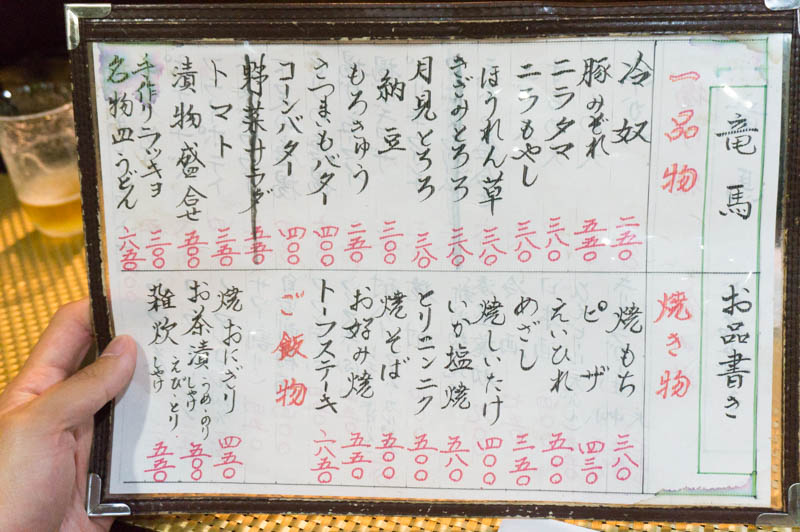 竜馬 お品書き
一品物
冷奴 二五〇
豚みぞれ 五五〇
ニラタマ 三八〇
ニラもやし 三八〇
ほうれん草 三八〇
きざみとろろ 三八〇
月見とろろ 三八〇
納豆 三〇〇
もろきゅう 二五〇
さつまいもバター 四〇〇
コーンバター 四〇〇
野菜サラダ 五五〇
トマト 三五〇
漬物盛合せ 五〇〇
手作りラッキョ 三〇〇
名物皿うどん 六五〇
焼き物
焼もち 三八〇
ピザ 四三〇
えいひれ 五〇〇
めざし 三五〇
焼しいたけ 四〇〇
いか塩焼 五八〇
とりニンニク 五〇〇
焼そば 五〇〇
お好み焼 五五〇
トーフステーキ 六五〇
ご飯物
焼おにぎり 四五〇
お茶漬 うめ・のり しゃけ 五〇〇
雑炊 えび・とり・しゃけ 五五〇